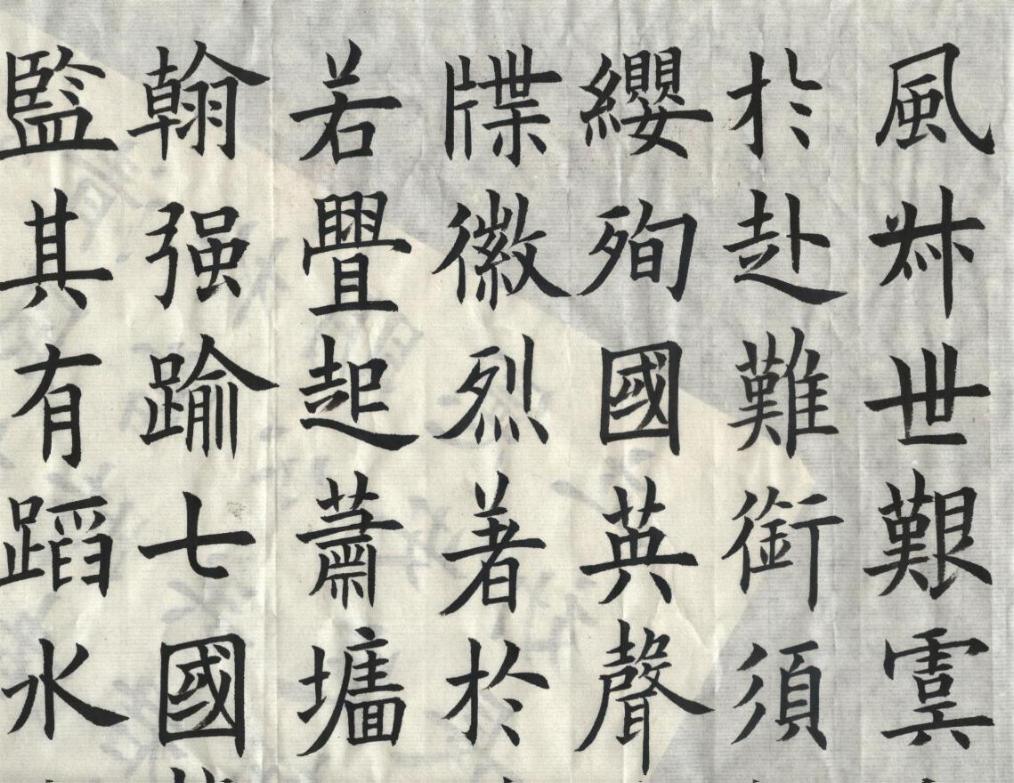 風世艱虞
於赴難銜須
纓殉國英聲
牒徽烈著於
若舋起蕭墻
翰强踰七國
監其有蹈水